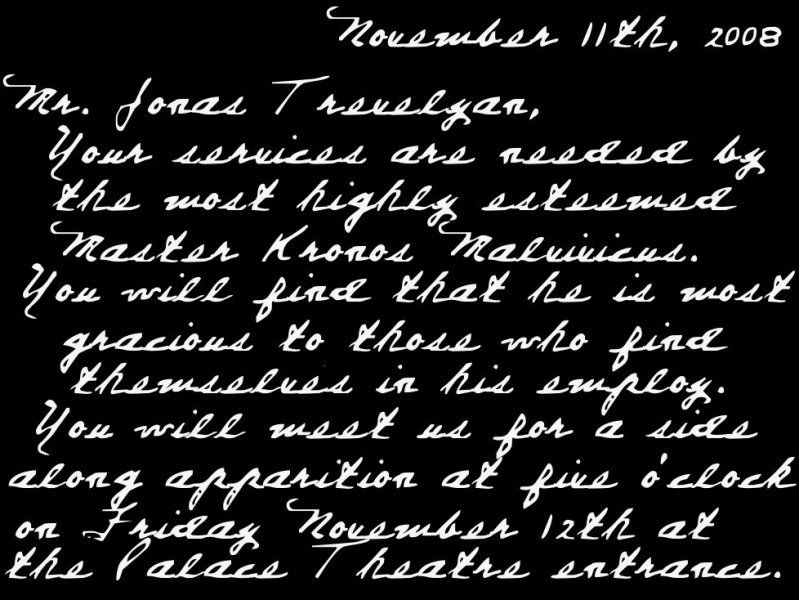 November 11th, 2008
Mr. Jonas Trevelyan,
Your services are needed by
the most highly esteemed
Master Kronos Malvivicus.
You will find that he is most
gracious to those who find
themselves in his employ.
You will meet us for a side
along apparition at five o'clock
on Friday November 12th at
the Palace Theatre entrance.